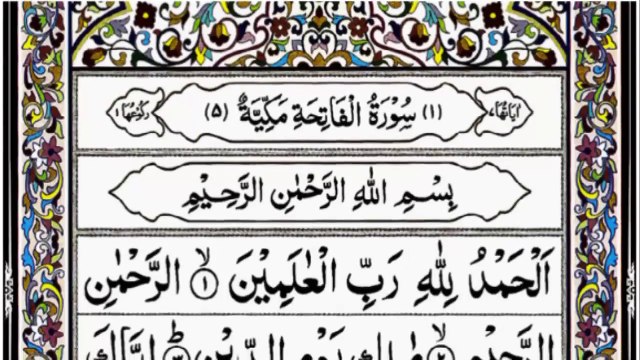 اٰيَاتُهَا٧ (١) سُوْرَةُ الْفَاتِحَةِ مَكِّيَّةٌ (٥) رُكُوْعُهَا١
بِسْمِ اللّٰهِ الرَّحْمٰنِ الرَّحِيْمِ
اَلْحَمْدُ لِلّٰهِ رَبِّ الْعٰلَمِيْنَ ۙ‏﴿١﴾ الرَّحْمٰنِ
الرَّحِيْمِ ۙ‏﴿٢﴾ مٰلِكِ يَوْمِ الدِّيْنِ ؕ‏﴿٣﴾ اِيَّاكَ